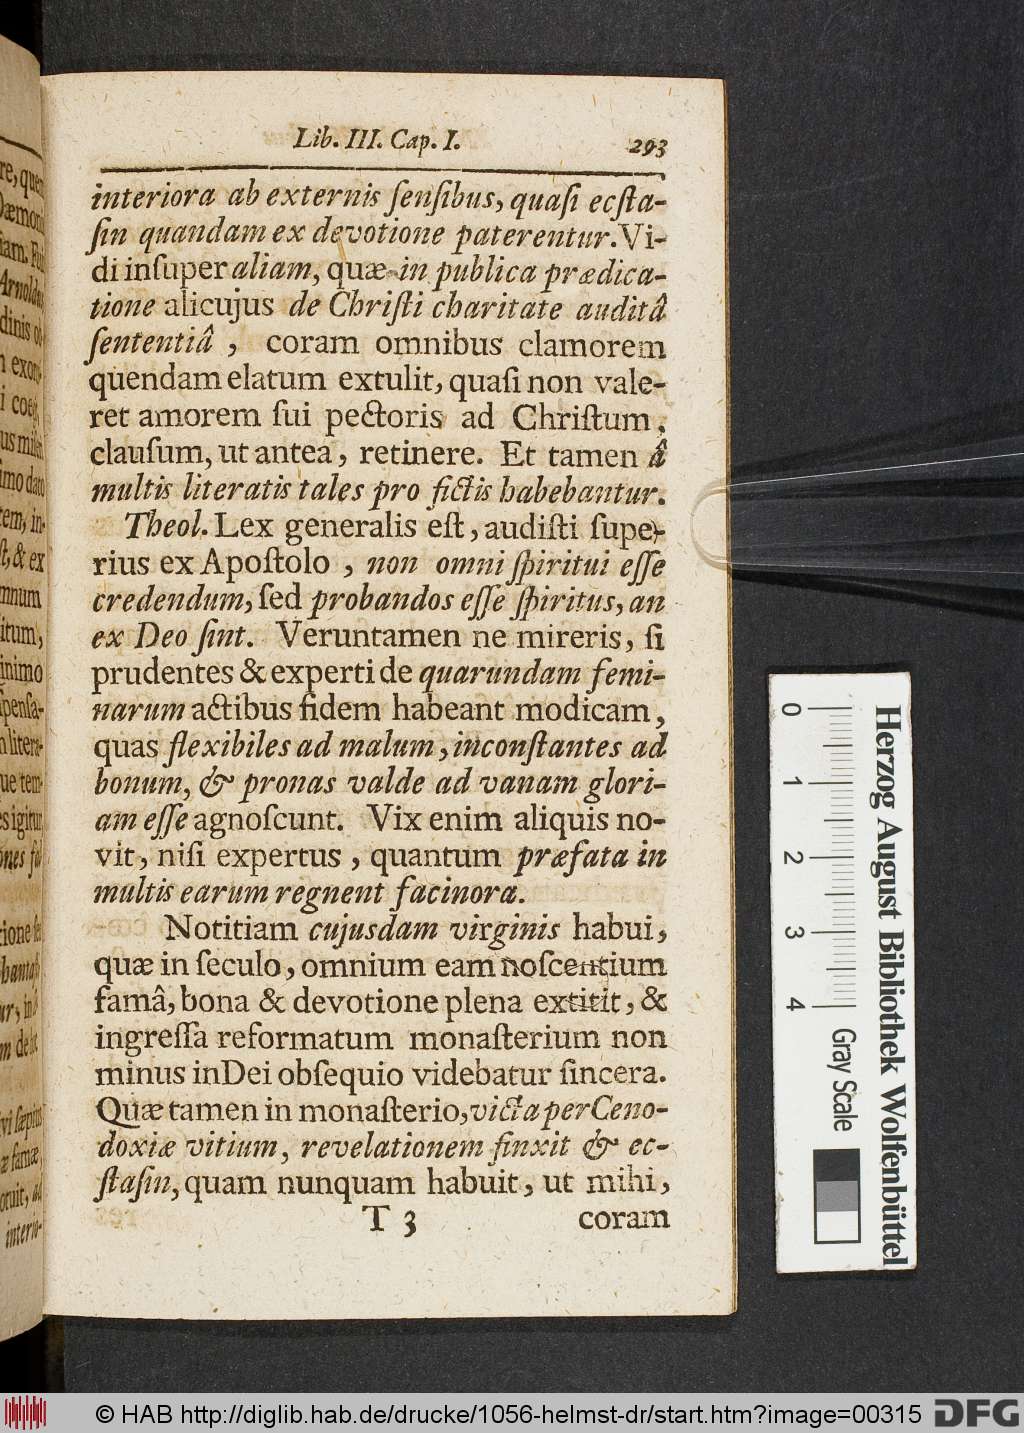 Lib. III. Cap. I. 293
interiora ab externis ſenſibus, quaſi ecſta-
ſin quandam ex devotione paterentur. Vi-
di inſuper aliam, quæ in publica prædica-
tione alicujus de Chriſti charitate auditâ
ſententiâ , coram omnibus clamorem
quendam elatum extulit, quaſi non vale-
ret amorem ſui pectoris ad Chriſtum,
clauſum, ut antea, retinere. Et tamen â
multis literatis tales pro fictis habebantur.
Theol. Lex generalis eſt, audiſti ſupe-
rius ex Apoſtolo , non omni ſpiritui eſſe
credendum, ſed probandos eſſe ſpiritus, an
ex Deo ſint. Veruntamen ne mireris, ſi
prudentes & experti de quarundam femi-
narum actibus fidem habeant modicam,
quas flexibiles ad malum, inconſtantes ad
bonum, & pronas valde ad vanam glori-
am eſſe agnoſcunt. Vix enim aliquis no-
vit, niſi expertus , quantum præfata in
multis earum regnent facinora.
Notitiam cujusdam virginis habui,
quæ in ſeculo, omnium eam noſcentium
famâ, bona & devotione plena extitit, &
ingreſſa reformatum monaſterium non
minus in Dei obſequio videbatur ſincera.
Quæ tamen in monaſterio, victa per Ceno-
doxiæ vitium, revelationem finxit & ec-
ſtaſin, quam nunquam habuit, ut mihi,
T 3 coram
0 1 2 3 4
Herzog August Bibliothek Wolfenbüttel
Gray Scale
© HAB http://diglib.hab.de/drucke/1056-helmst-dr/start.htm?image=00315
DFG